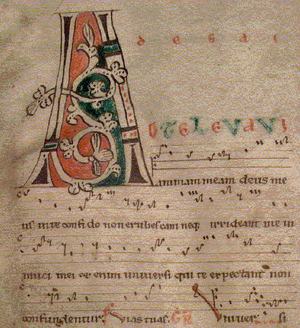 AD TE LEVAVI
animam meam deus me
us inte confido non erubescam neq irrideant me in
imici mei et enim universi qui te expectant non
confundentur. Vias tuas. GR Univer si